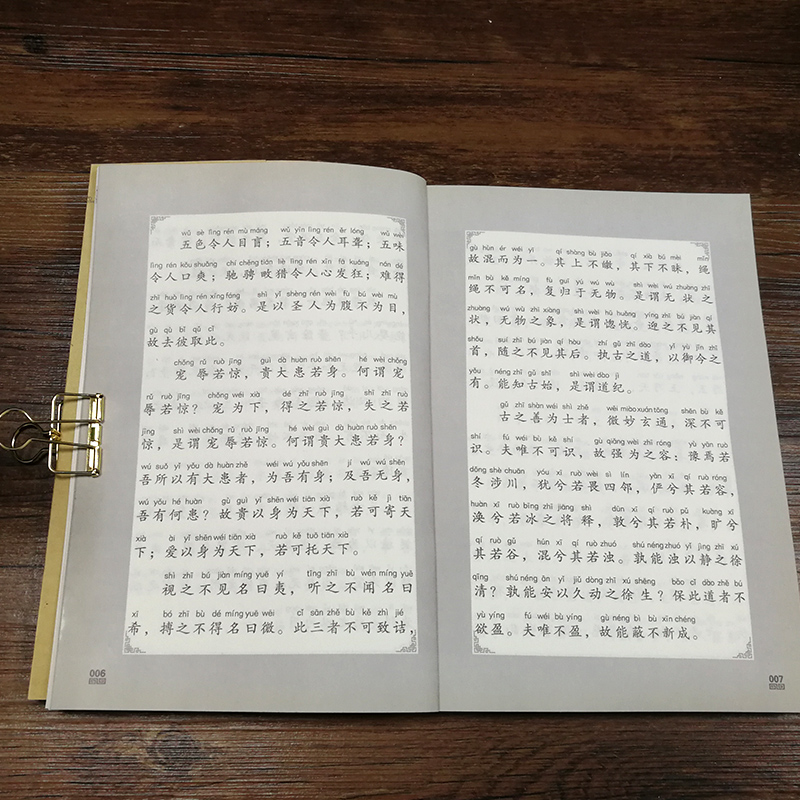 wǔ sè lìng rén mù máng wǔ yīn lìng rén ěr lóng wǔ wèi
五色令人目盲；五音令人耳聋；五味
lìng rén kǒu shuǎng chí chěng tián liè lìng rén xīn fā kuáng nán dé
令人口爽；驰骋畋猎令人心发狂；难得
zhī huò lìng rén xíng fáng shì yǐ shèng rén wèi fù bú wèi mù
之货令人行妨。是以圣人为腹不为目，
gù qù bǐ qǔ cǐ
故去彼取此。
chǒng rǔ ruò jīng guì dà huàn ruò shēn hé wèi chǒng
宠辱若惊，贵大患若身。何谓宠
rǔ ruò jīng chǒng wéi xià dé zhī ruò jīng shī zhī ruò
辱若惊？宠为下，得之若惊，失之若
jīng shì wèi chǒng rǔ ruò jīng hé wèi guì dà huàn ruò shēn
惊，是谓宠辱若惊。何谓贵大患若身？
wú suǒ yǐ yǒu dà huàn zhě wéi wú yǒu shēn jí wú wú shēn
吾所以有大患者，为吾有身；及吾无身，
wú yǒu hé huàn gù guì yǐ shēn wéi tiān xià ruò kě jì tiān
吾有何患？故贵以身为天下，若可寄天
xià ài yǐ shēn wéi tiān xià ruò kě tuō tiān xià
下；爱以身为天下，若可托天下。
shì zhī bú jiàn míng yuē yí tīng zhī bù wén míng yuē
视之不见名曰夷，听之不闻名曰
xī bó zhī bù dé míng yuē wēi cǐ sān zhě bù kě zhì jié
希，搏之不得名曰微。此三者不可致诘，
006
gù hùn ér wéi yī qí shàng bù jiǎo qí xià bú mèi mǐn
故混而为一。其上不皦，其下不昧，绳
mǐn bù kě míng fù guī yú wú wù shì wèi wú zhuàng zhī
绳不可名，复归于无物。是谓无状之
zhuàng wú wù zhī xiàng shì wèi hū huǎng yíng zhī bú jiàn qí
状，无物之象，是谓惚恍。迎之不见其
shǒu suí zhī bú jiàn qí hòu zhí gǔ zhī dào yǐ yù jīn zhī
首，随之不见其后。执古之道，以御今之
yǒu néng zhī gǔ shǐ shì wèi dào jì
有。能知古始，是谓道纪。
gǔ zhī shàn wéi shì zhě wēi miào xuán tōng shēn bù kě
古之善为士者，微妙玄通，深不可
shí fú wéi bù kě shí gù qiǎng wéi zhī róng yù yān ruò
识。夫唯不可识，故强为之容：豫焉若
dōng shè chuān yóu xī ruò wèi sì lín yǎn xī qí ruò róng
冬涉川，犹兮若畏四邻，俨兮其若容，
huàn xī ruò bīng zhī jiāng shì dūn xī qí ruò pǔ kuàng xī
涣兮若冰之将释，敦兮其若朴，旷兮
qí ruò gǔ hùn xī qí ruò zhuó shú néng zhuó yǐ jìng zhī xú
其若谷，混兮其若浊。孰能浊以静之徐
qīng shú néng ān yǐ jiǔ dòng zhī xú shēng bǎo cǐ dào zhě bú
清？孰能安以久动之徐生？保此道者不
yù yíng fú wéi bù yíng gù néng bì bù xīn chéng
欲盈。夫唯不盈，故能蔽不新成。
007